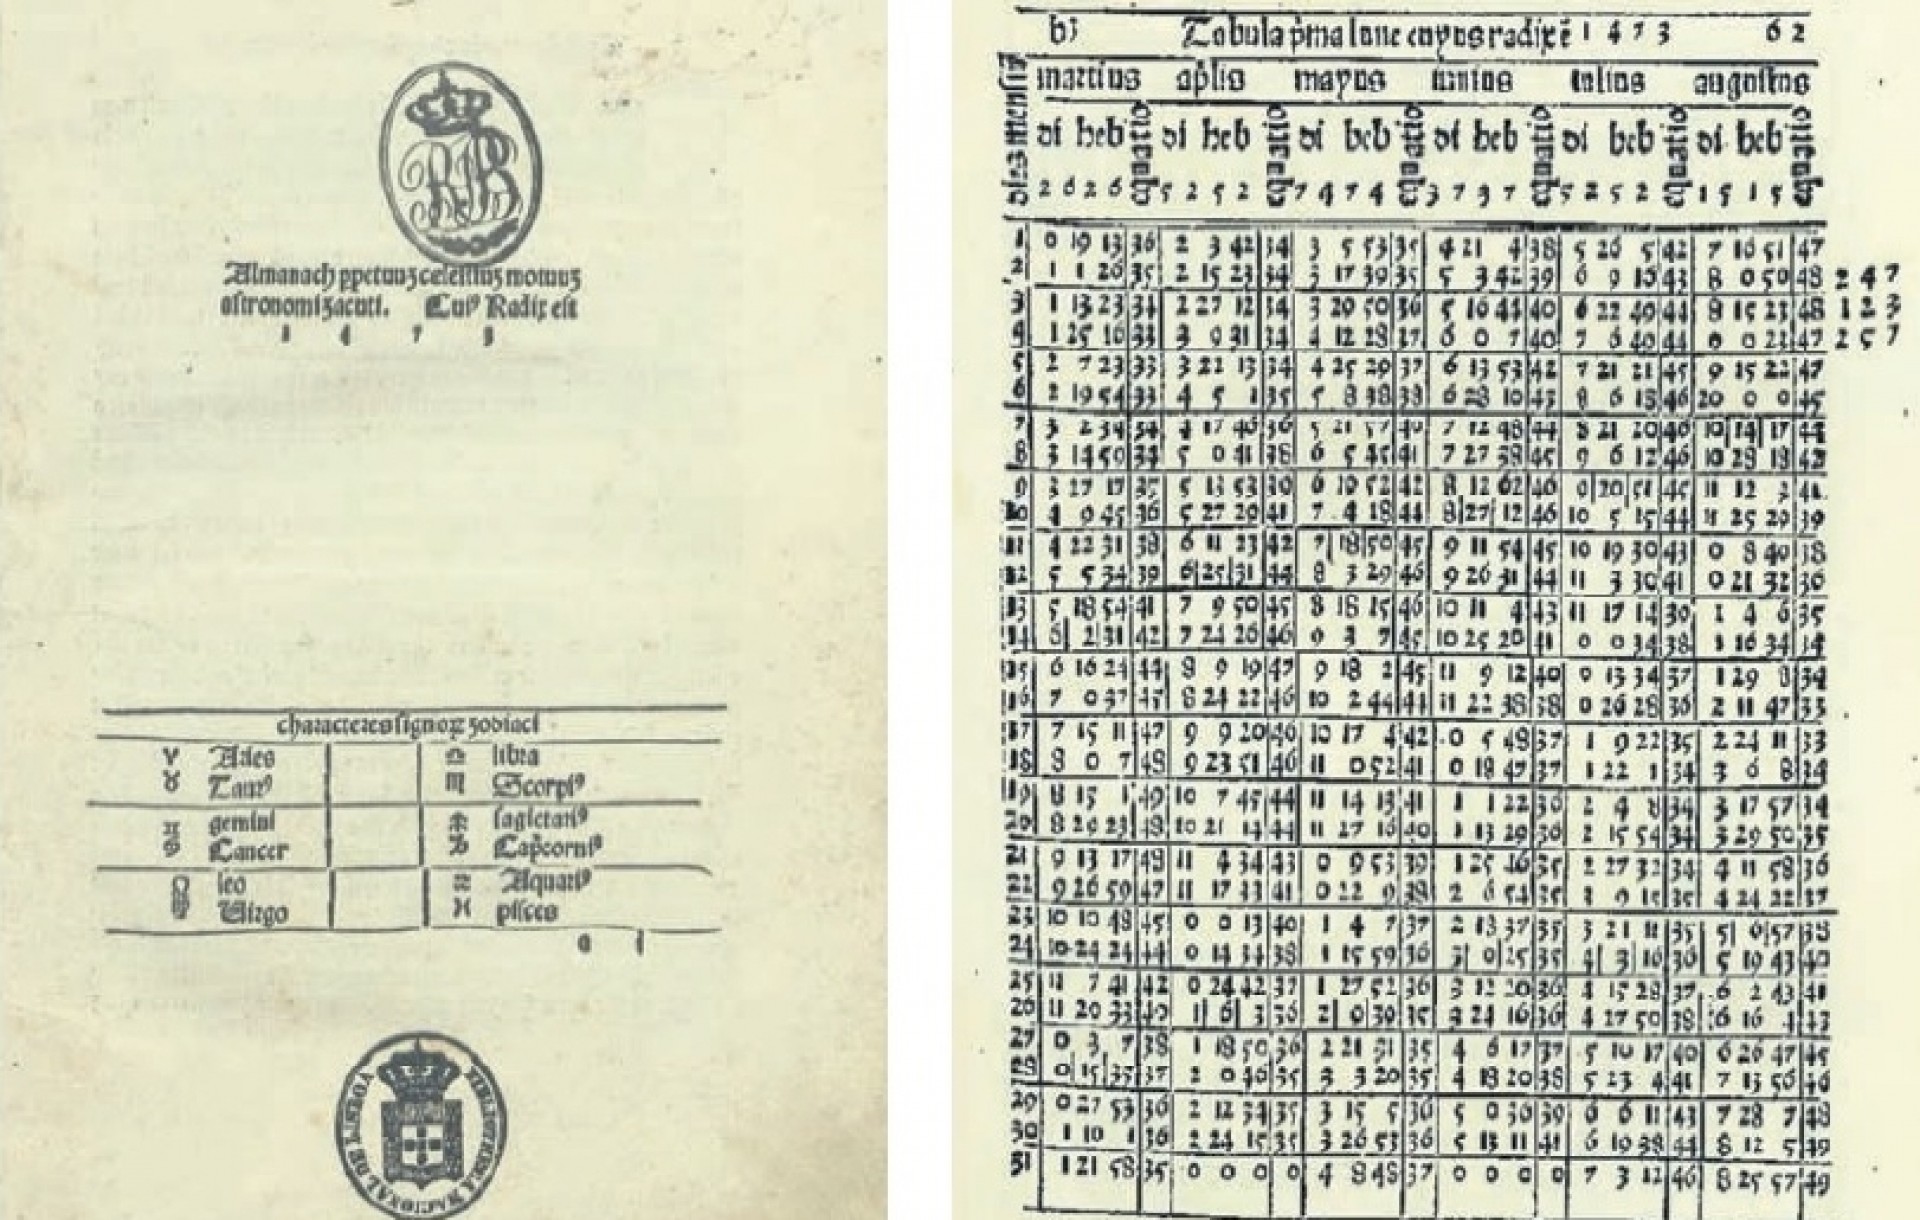 RB
Almanach ppetuuz celestiuz motuuz
astronomi zacuti. Cuiꝰ Radix est
1 4 7 3
characteres signoꝝ zodiaci
♈ Aries ♎ libra
♉ Taurꝰ ♏ Scorpiꝰ
♊ gemini ♐ sagictariꝰ
♋ Cancer ♑ Capcornꝰ
♌ leo ♒ Aquariꝰ
♍ Virgo ♓ pisces
a 1
BIBLIOTHECA NACIONAL DE LISBOA
b) Tabula pma lune cuyus radix ē 1 4 7 3 6 2
martius aplis mayus iunius iulius augustus
dies mensis di heb equatio di heb equatio di heb equatio di heb equatio di heb equatio di heb equatio
2 6 2 6 5 2 5 2 7 4 7 4 3 7 3 7 5 2 5 2 1 5 1 5
1 0 19 13 36 2 3 42 34 3 5 53 35 4 21 4 38 5 26 5 42 7 16 51 47
2 1 1 26 35 2 15 23 34 3 17 39 35 5 3 42 39 6 9 16 43 8 0 50 48 2 4 7
3 1 13 23 34 2 27 12 34 3 20 50 36 5 16 44 40 6 22 49 44 8 15 23 48 1 2 3
4 1 25 16 33 3 9 31 34 4 12 28 37 6 0 7 40 7 6 49 44 0 0 23 47 2 5 7
5 2 7 23 33 3 22 13 34 4 25 29 37 6 13 53 42 7 21 21 45 9 15 22 47
6 2 19 54 33 4 5 1 35 5 8 38 38 6 28 10 43 8 6 18 46 20 0 0 45
7 3 2 39 34 4 17 46 36 5 21 57 40 7 12 48 44 8 21 20 46 10 14 17 44
8 3 14 59 34 5 0 41 38 6 5 45 41 7 27 38 45 9 6 12 46 10 28 18 42
9 3 27 17 35 5 13 53 39 6 19 52 42 8 12 62 46 0 20 51 45 11 12 3 41
10 4 9 45 36 5 27 29 41 7 4 18 44 8 27 12 46 10 5 15 44 11 25 29 39
11 4 22 31 38 6 11 23 42 7 18 50 45 9 11 54 45 10 19 30 43 0 8 49 38
12 5 5 34 39 6 25 31 44 8 3 29 46 9 26 31 44 11 3 30 41 0 21 32 36
13 5 18 54 41 7 9 50 45 8 18 15 46 10 11 4 43 11 17 14 39 1 4 6 35
14 6 2 31 42 7 24 26 46 9 3 7 45 10 25 20 41 0 0 34 38 1 16 34 34
15 6 16 24 44 8 9 19 47 9 18 2 45 11 9 12 40 0 13 34 37 1 29 8 34
16 7 0 37 45 8 24 22 46 10 2 44 44 11 22 38 38 0 26 28 36 2 11 47 33
17 7 15 11 47 9 9 20 46 10 17 4 42 0 5 49 37 1 9 22 35 2 24 11 33
18 8 0 7 48 9 23 51 46 11 0 52 41 0 18 47 37 1 22 1 34 3 6 8 34
19 8 15 1 49 10 7 45 44 11 14 13 41 1 1 22 36 2 4 8 34 3 17 57 34
20 8 29 23 48 10 21 14 44 11 27 16 40 1 13 29 36 2 15 54 34 3 29 50 35
21 9 13 17 48 11 4 34 43 0 9 53 39 1 25 16 35 2 27 32 34 4 11 58 36
22 9 26 59 47 11 17 33 41 0 22 9 38 2 6 54 35 3 9 15 35 4 24 22 37
23 10 10 48 45 0 0 13 40 1 4 7 37 2 18 37 35 3 21 11 35 5 6 57 38
24 10 24 24 44 0 14 34 38 1 15 59 36 3 0 25 35 4 3 16 36 5 19 43 40
25 11 7 41 42 0 24 42 37 1 27 52 36 3 12 20 36 4 15 28 37 6 2 43 41
26 11 20 33 40 1 6 3 36 2 9 39 35 3 24 16 36 4 27 50 38 6 16 4 43
27 0 3 7 38 1 18 50 36 2 21 31 35 4 6 17 37 5 10 17 40 6 26 47 45
28 0 15 35 37 2 0 46 35 3 3 20 35 4 18 20 38 5 23 4 41 7 13 56 46
29 0 27 53 36 2 12 34 35 3 15 5 36 5 0 36 39 6 6 11 43 7 28 7 48
30 1 10 1 36 2 24 15 35 3 26 53 36 5 13 11 41 6 19 38 44 8 12 5 49
31 1 21 58 35 0 0 0 0 4 8 48 37 0 0 0 0 7 3 12 46 8 25 57 49